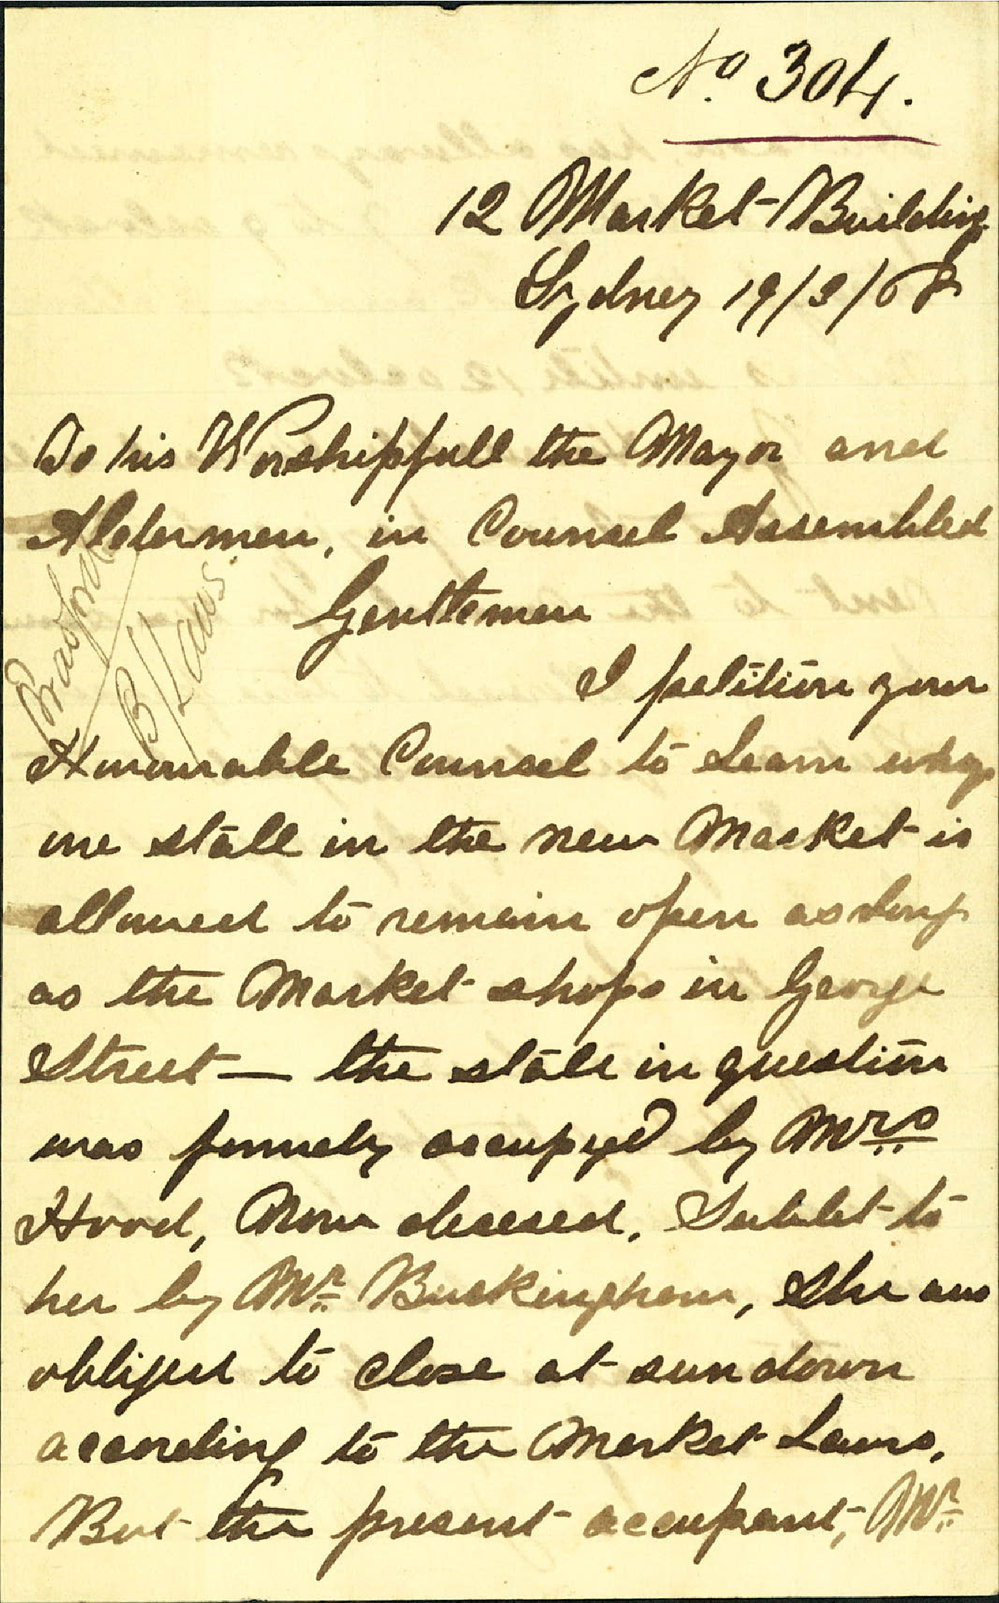 No. 304.
12 Market-Building
Sydney 19/3/68
To his Worshipfull the Mayor and
Aldermen, in Counsel Assembled
Gentlemen
Bradford
B/Laws.
I petition your
Honourable Counsel to Learn why
one stall in the new Market is
allowed to remain open as Long
as the Market shops in George
Street — the stall in question
was formely occupyd by Mrs
Hood, Now desesed, Sublet to
her by Mr Buckinghem, She was
obliged to close at sundown
according to the Market Laws,
But the present occupant, Mr